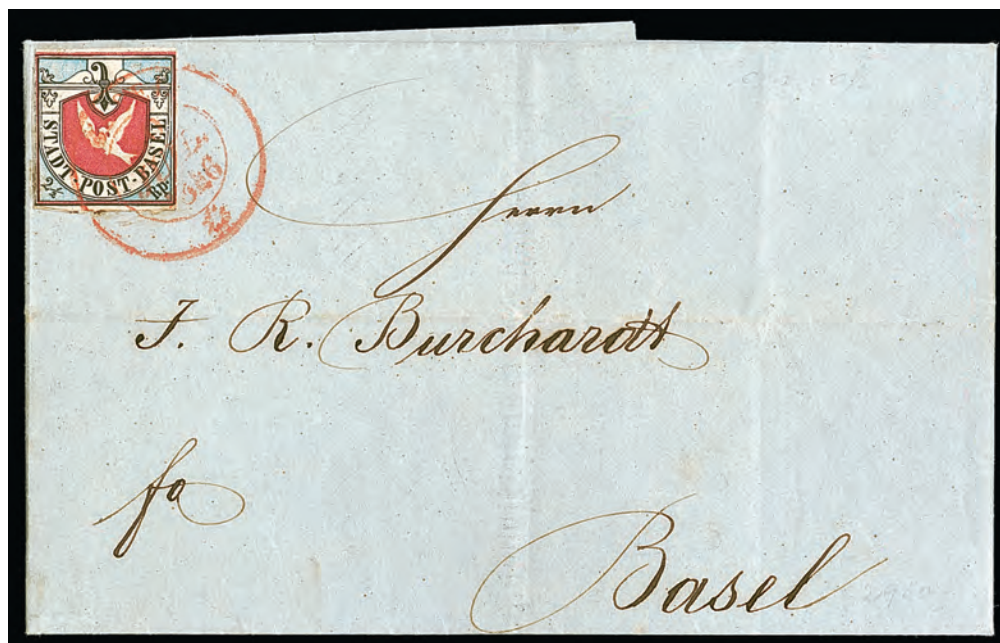 STADT-POST-BASEL
2½ Rp.
Herrn
J. R. Burchardt
fo
Basel